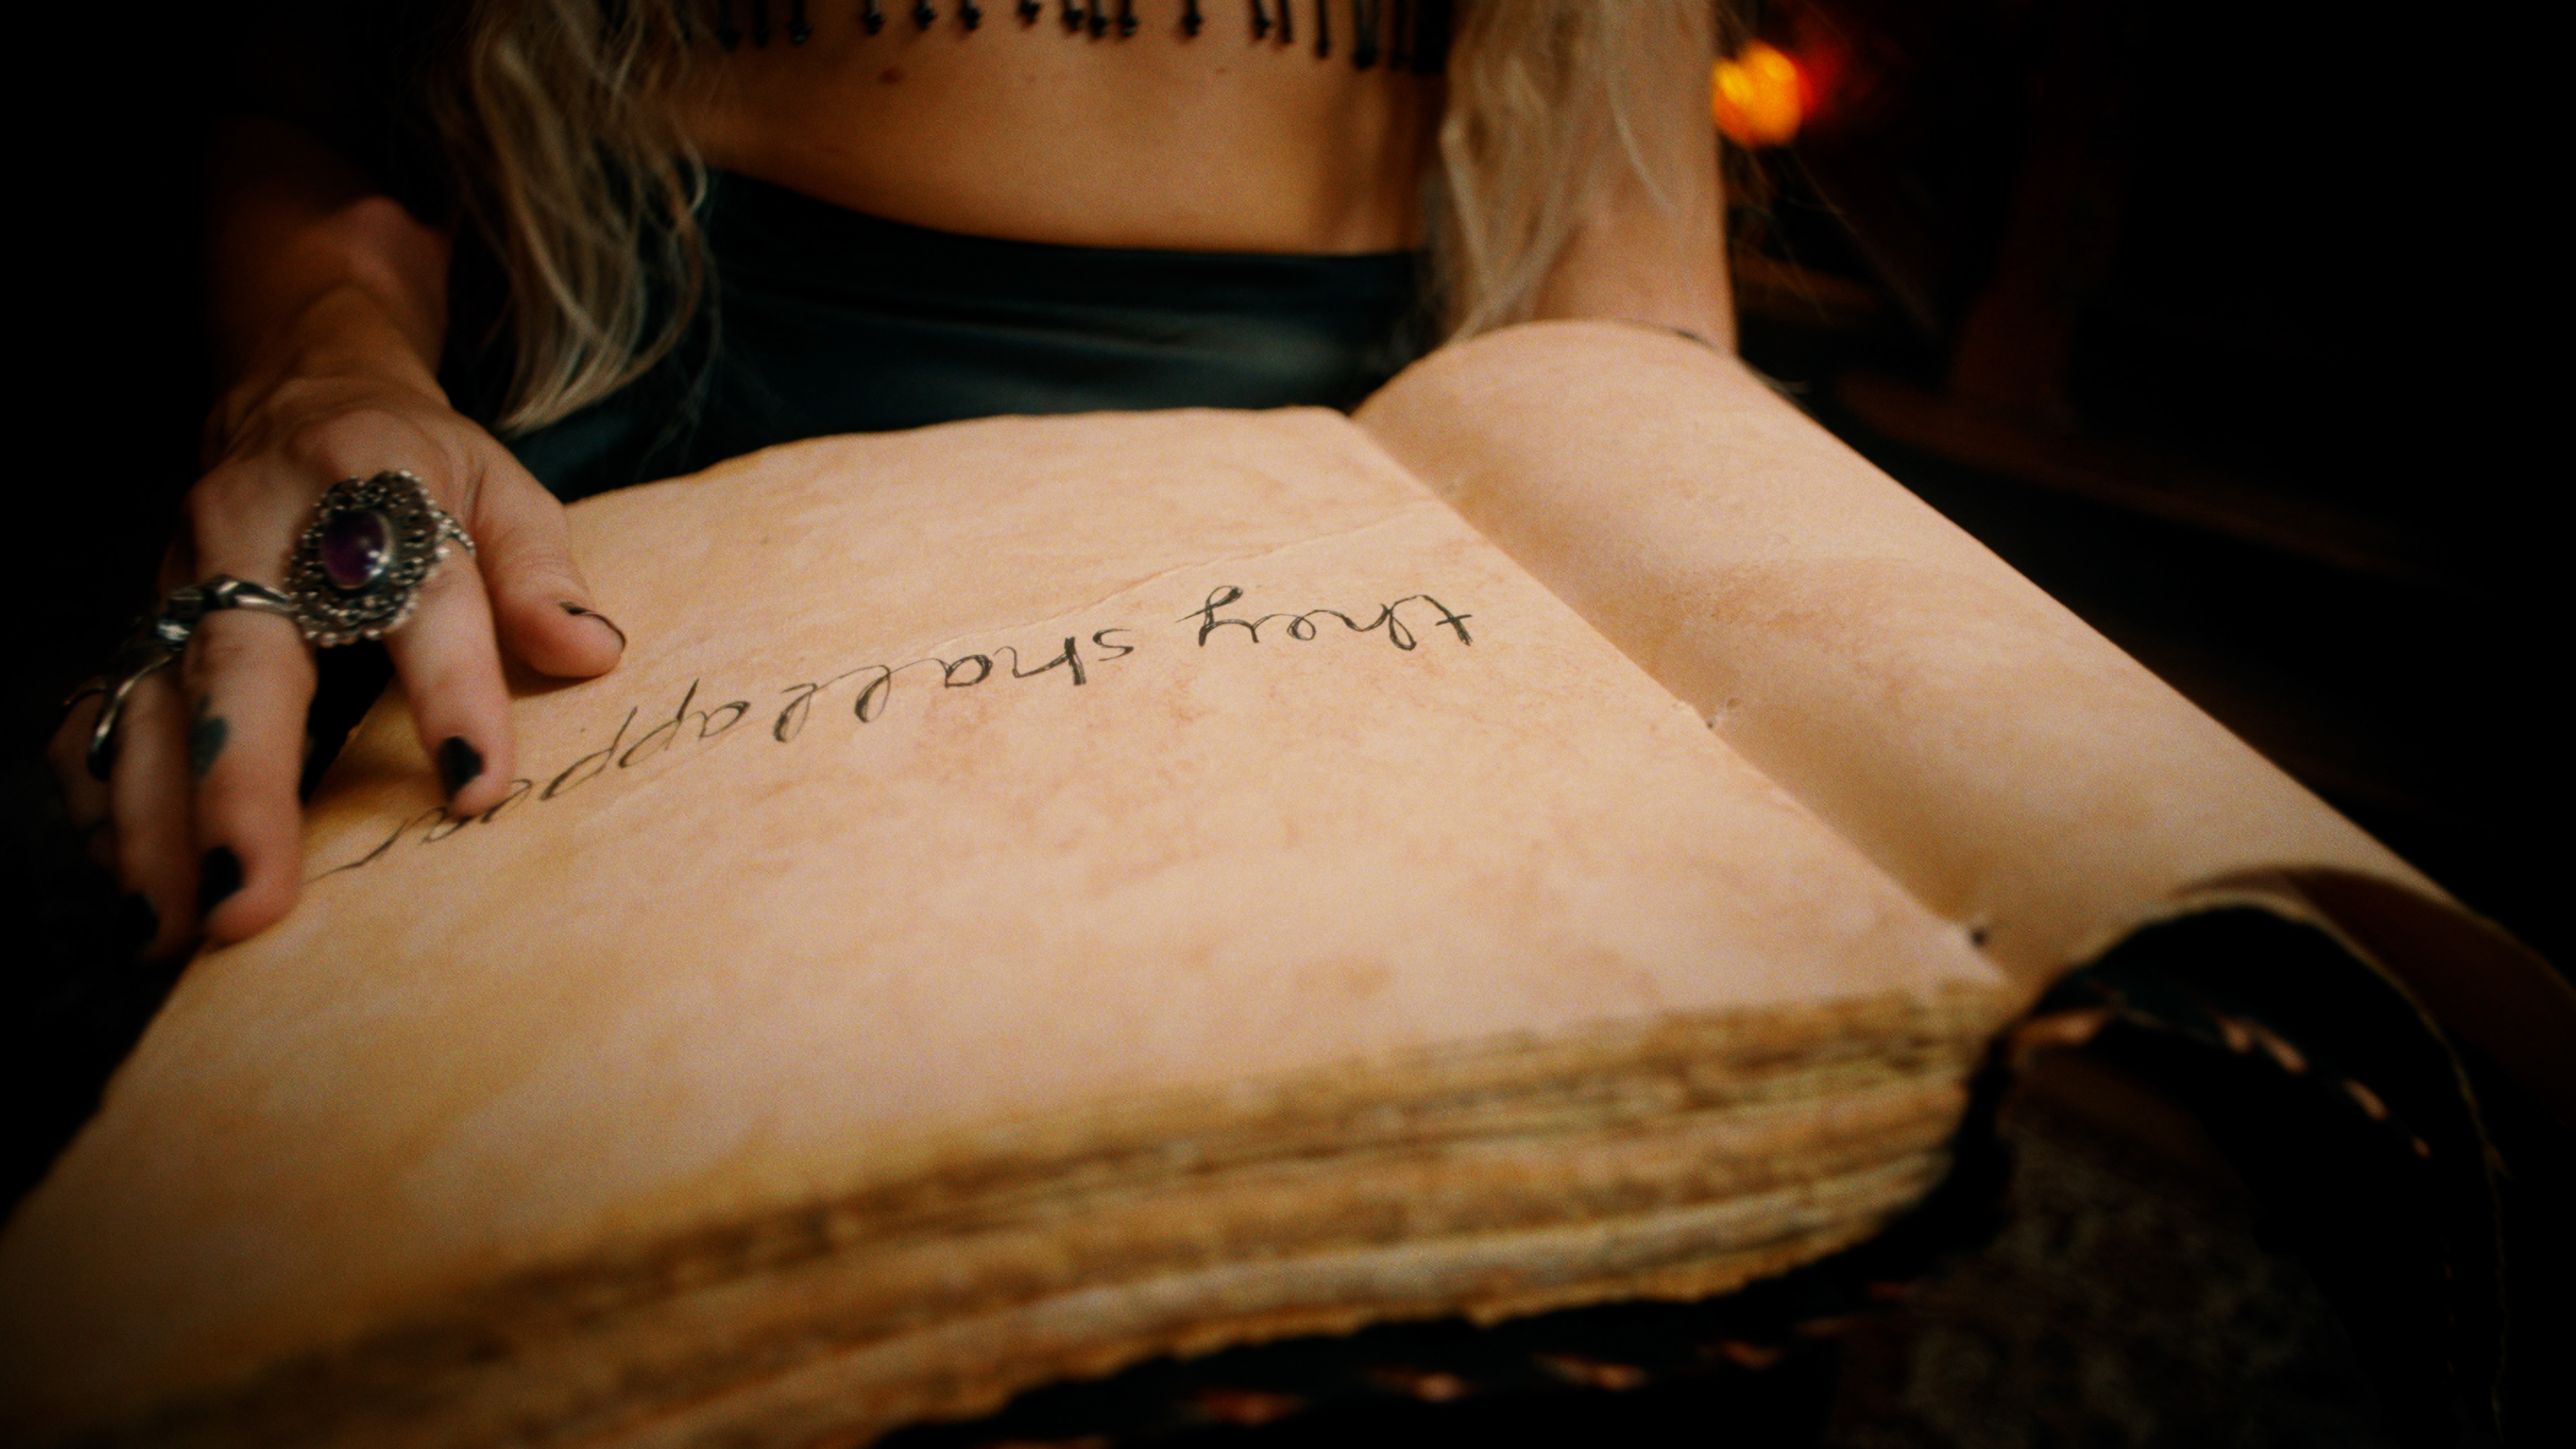 they shall appear